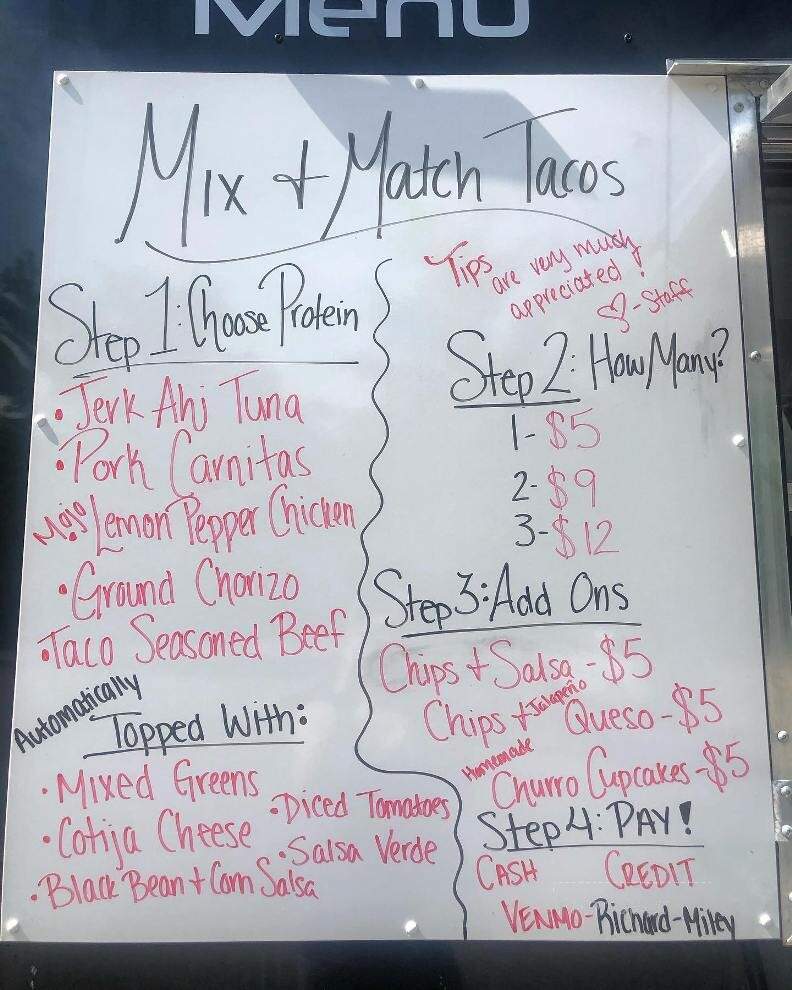 Menu
Mix + Match Tacos
Step 1: Choose Protein
• Jerk Ahi Tuna
• Pork Carnitas
Mojo Lemon Pepper Chicken
• Ground Chorizo
• Taco Seasoned Beef
Automatically
Topped With:
• Mixed Greens
• Diced Tomatoes
• Cotija Cheese
• Salsa Verde
• Black Bean + Corn Salsa
Tips are very much
appreciated!
♡-Staff
Step 2: How Many?
1-$5
2-$9
3-$12
Step 3: Add Ons
Chips + Salsa-$5
Chips + Jalapeño Queso-$5
Homemade
Churro Cupcakes-$5
Step 4: PAY!
CASH CREDIT
VENMO-Richard-Miley